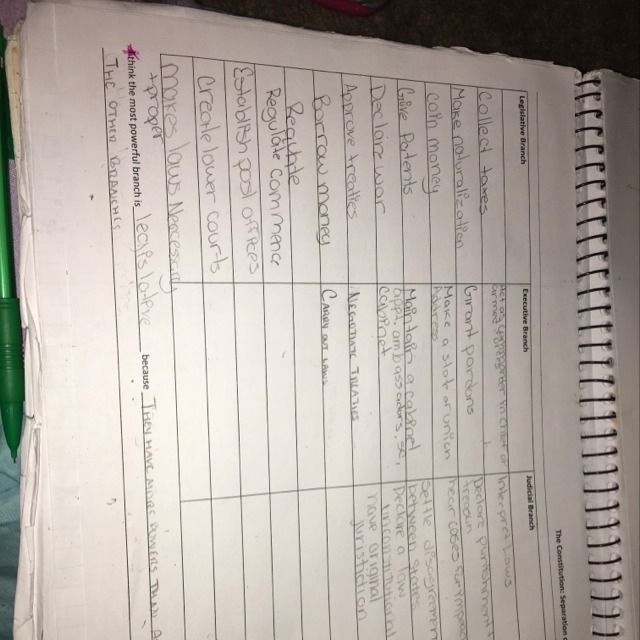 The Constitution: Separation
Legislative Branch
Executive Branch
Judicial Branch
Collect taxes
Make naturalization
Coin money
Give Patents
Declare war
Approve treaties
Borrow money
Regulate commerce
Establish post offices
Create lower courts
Makes laws
Proper
Act as
in chief of
Grant pardons
Make a stat of union
Maintain a cabinet
appt ambassadors,
cabinet
Negotiate Treaties
Carry out laws
Interpret Laws
Declare punishment
hear cases
Settle
between states
Declare a law
have original
Jurisdiction
think the most powerful branch is legislative because They have more powers than
THE OTHER BRANCHES